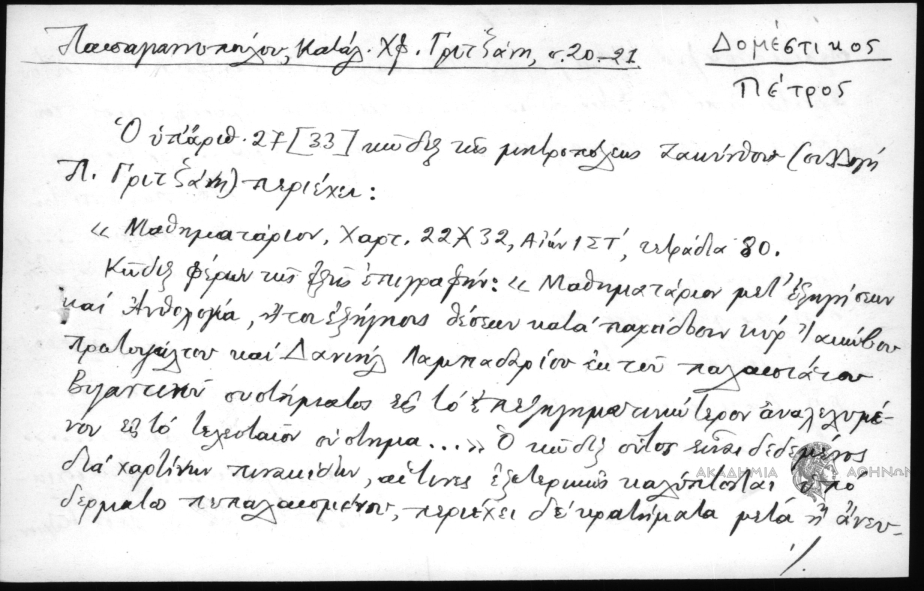 Παπαγιαννοπούλου, Κατάλ. Χφ. Γριτζάνη, σ. 20-21
Δομέστικος
Πέτρος
Ὁ ὑπ' ἀριθ. 27 [33] κῶδιξ τῆς μητροπόλεως Ζακύνθου (συλλογή
Π. Γριτζάνη) περιέχει:
« Μαθηματάριον, Χαρτ. 22Χ32, Αἰών ΙΣΤ', τετράδια 80.
Κῶδιξ φέρων τῆς ἑξῆς ἐπιγραφήν: « Μαθηματάριον μετ' ἐξηγήσεων
καί Ἀνθολογία, ἤτοι ἐξήγησις θέσεων κατά παράδοσιν κύρ Ἰακώβου
Πρωτοψάλτου καί Δανιήλ Λαμπαδαρίου ἐκ τοῦ παλαιοτάτου
Βυζαντινοῦ συστήματος εἰς τό ἐπεξηγηματικώτερον ἀναλελυμέ-
νον εἰς τό τελευταῖον σύστημα...» Ὁ κῶδιξ οὗτος εἶναι δεδεμένος
διά χαρτίνων πινακίδων, αἵτινες ἐξωτερικῶς καλύπτονται ὑπό
δέρματος πεπαλαιωμένου, περιέχει δέ κρατήματα μετά ἤ ἄνευ-
./.
ΑΚΑΔΗΜΙΑ ΑΘΗΝΩΝ